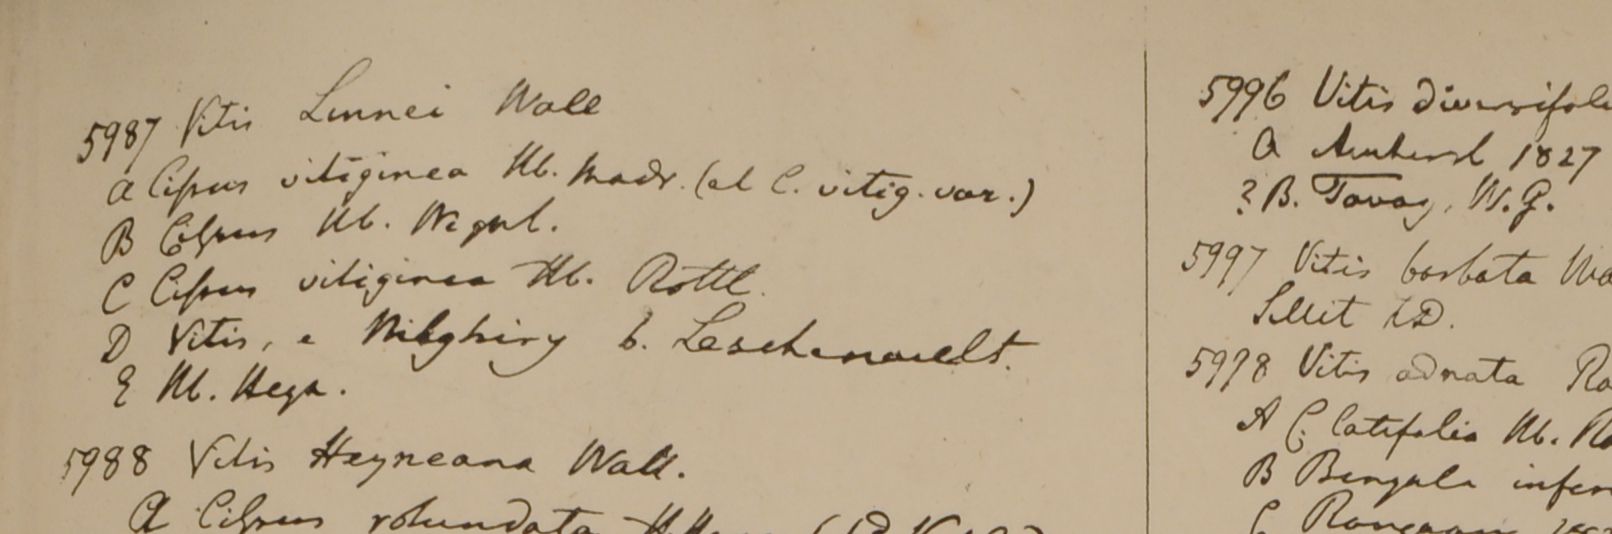 5987 Vitis Linnei Wall
A Cissus vitiginea Hb. Madr. (et C. vitig. var.)
B Cissus Hb. Wight.
C Cissus vitiginea Hb. Rottl.
D Vitis, e Nilghiry b. Leschenault.
E Hb. Heyn.
5988 Vitis Heyneana Wall.
A Cissus rotundata
5996 Vitis diversifoli
A Amherst 1827
? B. Tavoy, W.G.
5997 Vitis barbata Wa
Sillet FD.
5998 Vitis adnata Ro
A C. latifolia Hb. Ro
B Bengala infer
C Rangoon